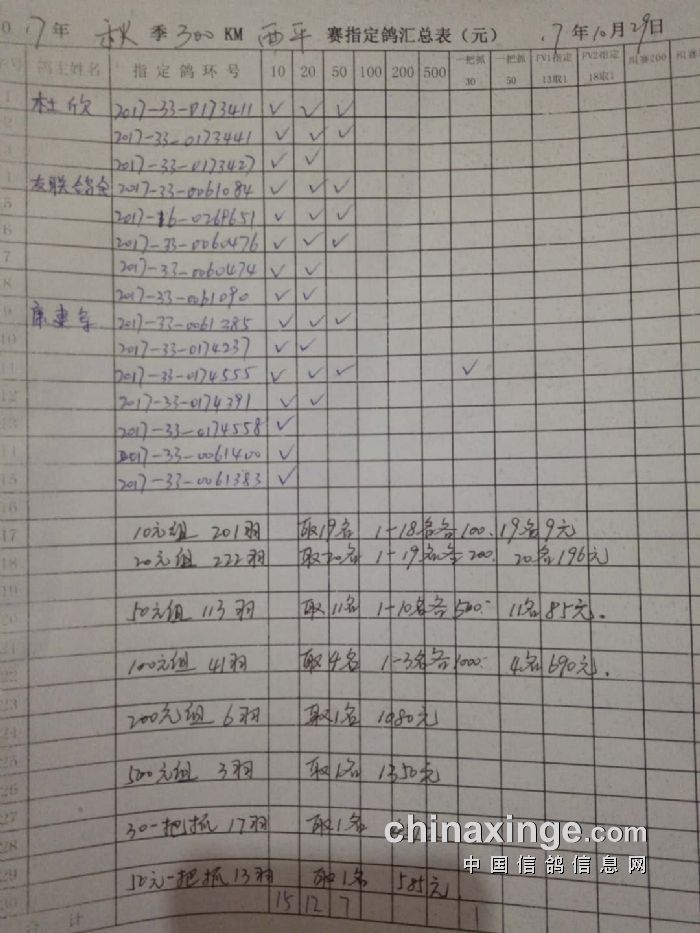 17年 秋 季 300 KM 西平 赛指定鸽汇总表（元） 17年10月29日
序号 鸽主姓名 指定鸽环号 10 20 50 100 200 500 一把抓30 一把抓50 PV1指定13取1 PV2指定18取1 组赛200
1 杜欣 2017-33-0173411 ✓ ✓ ✓
2 2017-33-0173441 ✓ ✓ ✓
3 2017-33-0173427 ✓ ✓
4 友联鸽舍 2017-33-0061084 ✓ ✓ ✓
5 2017-16-0269651 ✓ ✓ ✓
6 2017-33-0060476 ✓ ✓ ✓
7 2017-33-0060474 ✓ ✓
8 2017-33-0061090 ✓ ✓
9 康建军 2017-33-0061385 ✓ ✓ ✓
10 2017-33-0174237 ✓ ✓
11 2017-33-0174555 ✓ ✓ ✓ ✓
12 2017-33-0174391 ✓ ✓
13 2017-33-0174558 ✓
14 2017-33-0061400 ✓
15 2017-33-0061383 ✓
16
17 10元组 201羽 取19名 1-18名各100. 19名9元
18 20元组 222羽 取20名 1-19名各200. 20名196元
19
20 50元组 113羽 取11名 1-10名各500. 11名85元.
21
22 100元组 41羽 取4名 1-3名各1000. 4名690元.
23
24 200元组 6羽 取1名 1080元
25
26 500元组 3羽 取1名 1350元
27 30一把抓 17羽 取1名
28
29 50元一把抓 13羽 取1名 585元.
30
合计 15 12 7 1
chinaxinge.com
中国信鸽信息网